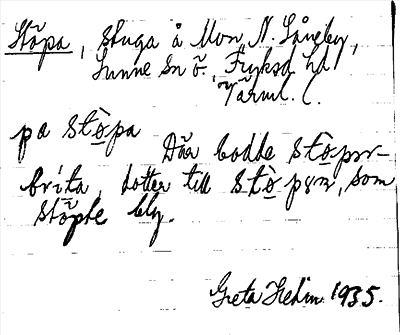 Stöpa, stuga å Mon, N. Långby,
Sunne sn ö., Fryksd. hd
Värml. C.
pa stò̤pa
Där bodde stò̤pər-
brita, dotter till stò̤pərn, som
stöpte bly.
Greta Hedin 1935.